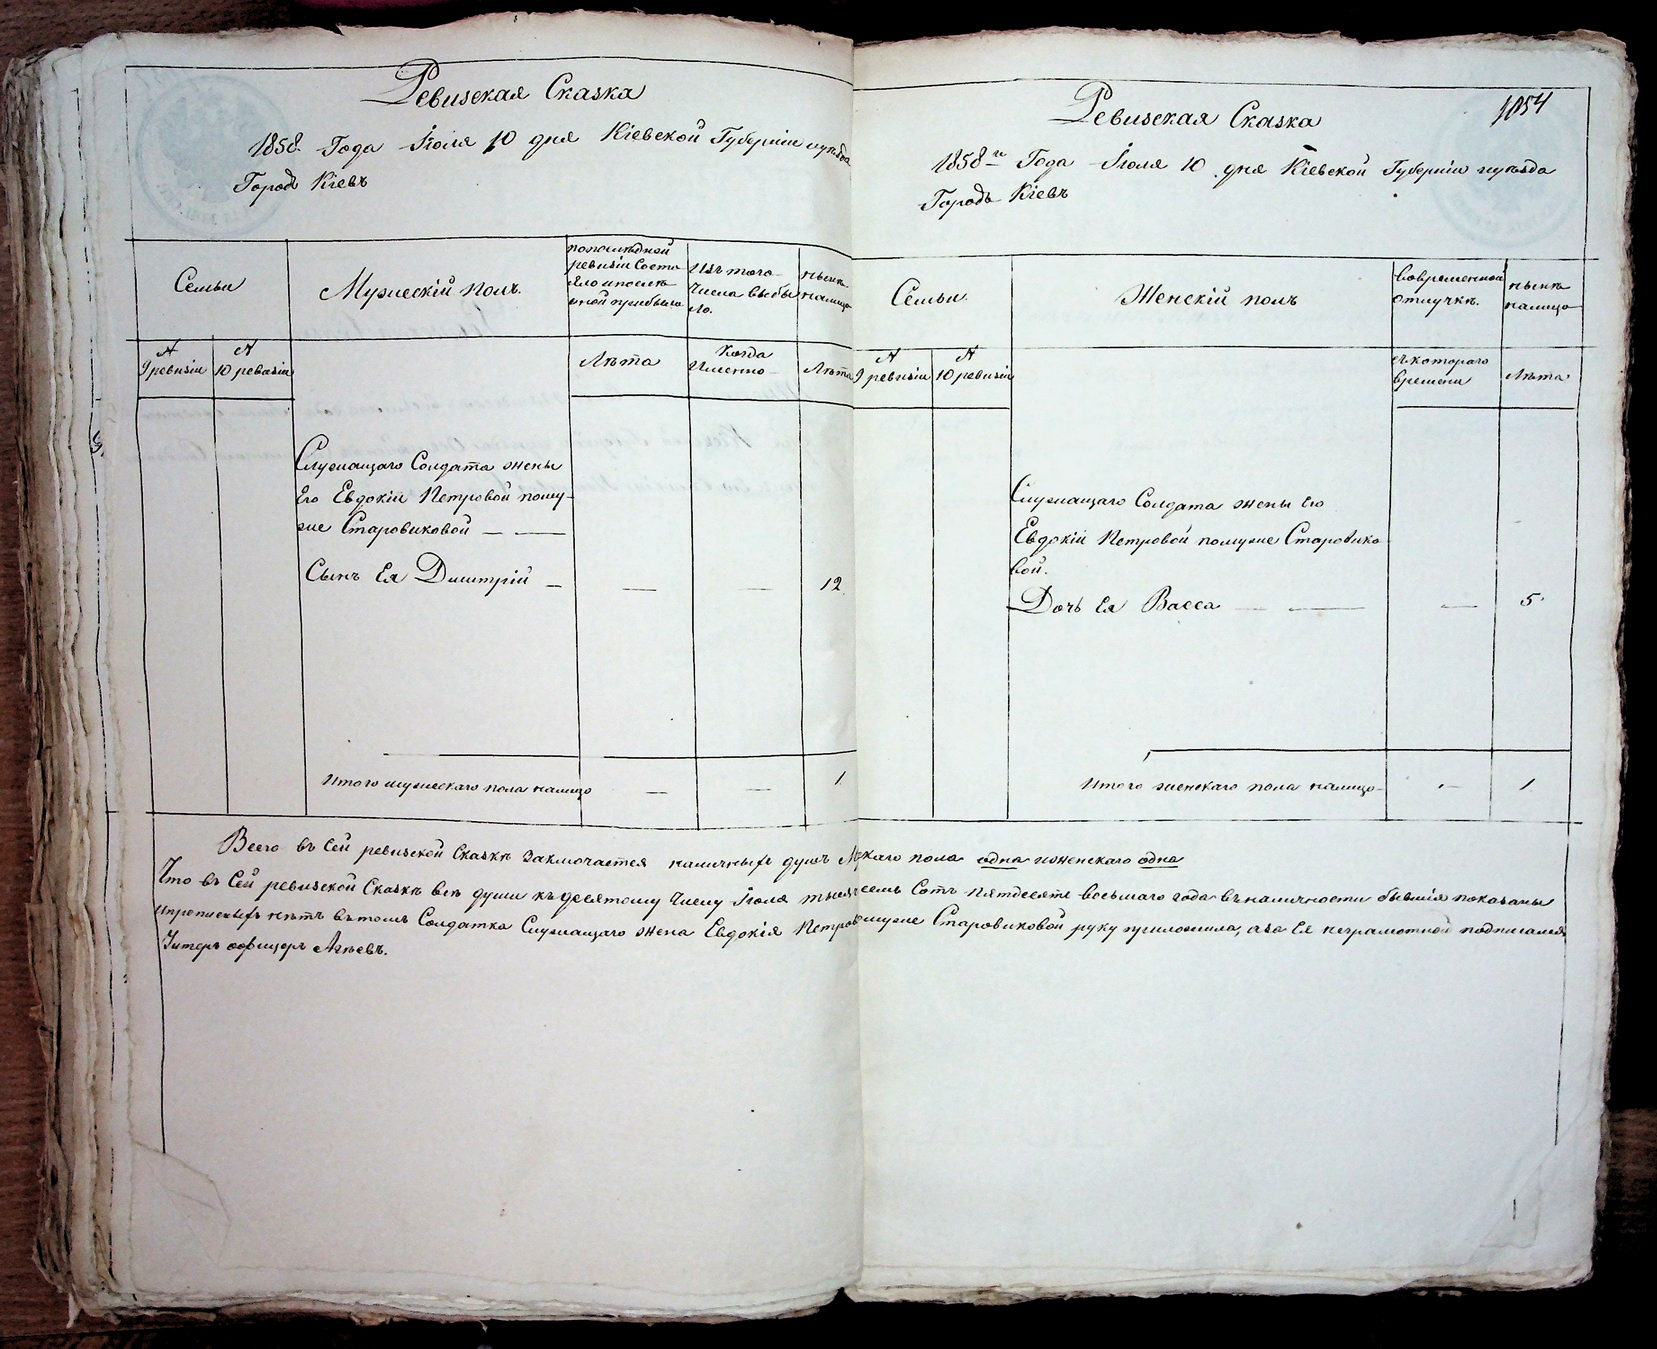 Ревизская Сказка
1858. Года Іюля 10 дня Кіевской Губерніи иуѣзда
Городъ Кіевъ
Семьи
Мужескій полъ.
попослѣдной
ревизіи Состо
яло ипослѣ
оной прибыло
Изъ того
Числа выбы
ло.
нынѣ
налицо
№
9 ревизіи
№
10 ревизіи
Лѣта
Когда
Именно
Лѣта
Служащаго Солдата жены
Его Евдокіи Петровой пому-
же Старовиковой — —
Сынъ Ея Димитрій — — — 12
Итого мужескаго пола налицо — — 1.
1054
Ревизская Сказка
1858го Года Іюля 10 дня Кіевской Губерніи иуѣзда
Городъ Кіевъ
Семьи.
Женскій полъ
Вовременной
отлучкѣ.
нынѣ
налицо
№
9 ревизіи
№
10 ревизіи
съкотораго
времени
Лѣта
Служащаго Солдата жены Его
Евдокіи Петровой помуже Старовико
вой.
Дочь Ея Васса — — — 5
Итого женскаго пола налицо - — 1
Всего въ Сей ревизской Сказкѣ Заключается наличныхъ душъ каго пола одна иженскаго одна
Что въ Сей ревизской Сказкѣ всѣ души къдесятому Числу Іюля семь Сотъ пятдесятъ весьмаго года въналичности бывшія показаны
ипрописныхъ нѣтъ втомъ Солдатка Служащаго жена Евдокія Петров Старовиковой руку приложила, аза Ея неграмотной подписался
Унтеръ оофицеръ Агѣевъ.